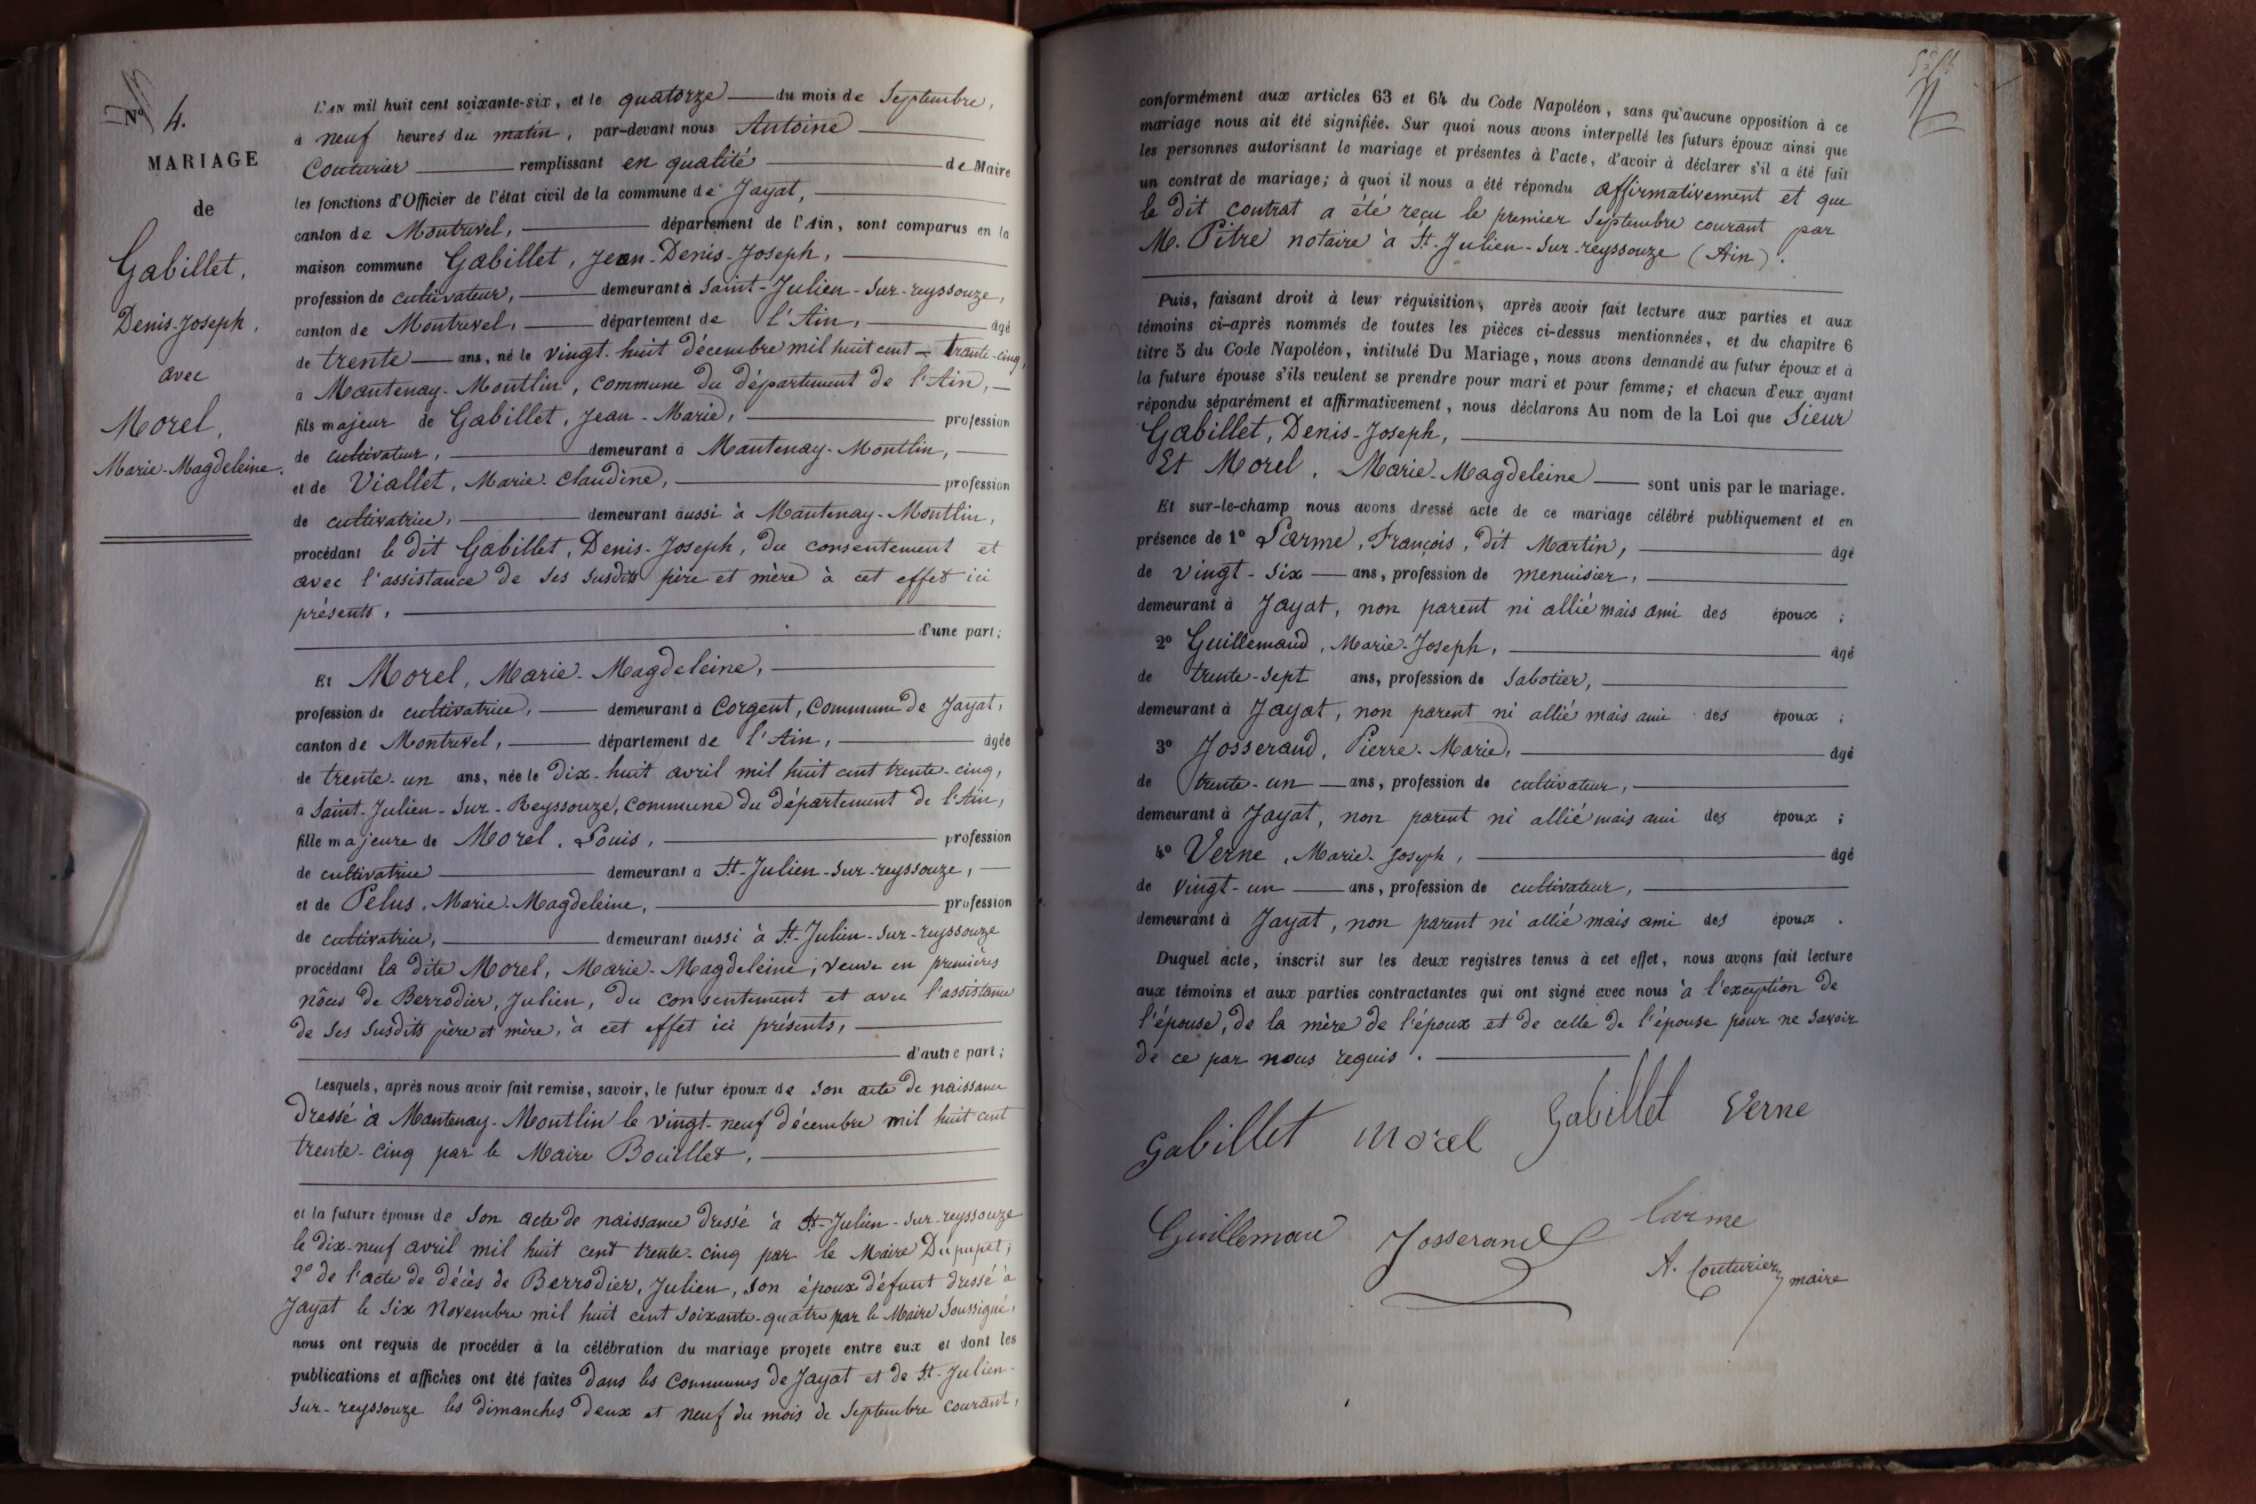 N° 4.
MARIAGE
de
Gabillet,
Denis-Joseph,
avec
Morel,
Marie-Magdeleine.
L'AN mil huit cent soixante-six, et le quatorze du mois de Septembre,
à neuf heures du matin, par-devant nous Antoine
Couturier remplissant en qualité de Maire
les fonctions d'Officier de l'état civil de la commune de Jayat,
canton de Montrevel, département de l'Ain, sont comparus en la
maison commune Gabillet, Jean-Denis-Joseph,
profession de cultivateur, demeurant à Saint-Julien-sur-reyssouze,
canton de Montrevel, département de l'Ain, âgé
de trente ans, né le vingt-huit décembre mil huit cent trente-cinq,
à Mantenay-Montlin, commune du département de l'Ain,
fils majeur de Gabillet, Jean-Marie, profession
de cultivateur, demeurant à Mantenay-Montlin,
et de Viallet, Marie-Claudine, profession
de cultivatrice, demeurant aussi à Mantenay-Montlin,
procédant le dit Gabillet, Denis-Joseph, du consentement et
avec l'assistance de ses susdits père et mère à cet effet ici
présents,
d'une part;
Et Morel, Marie-Magdeleine,
profession de cultivatrice, demeurant à Corgent, Commune de Jayat,
canton de Montrevel, département de l'Ain, âgée
de trente-un ans, née le dix-huit avril mil huit cent trente-cinq,
à Saint-Julien-sur-Reyssouze, commune du département de l'Ain,
fille majeure de Morel, Louis, profession
de cultivatrice demeurant à St-Julien-sur-reyssouze,
et de Pelus, Marie-Magdeleine, profession
de cultivatrice, demeurant aussi à St-Julien-sur-reyssouze
procédant la dite Morel, Marie-Magdeleine, veuve en premières
nôces de Berrodier, Julien, du consentement et avec l'assistance
de ses susdits père et mère, à cet effet ici présents,
d'autre part;
Lesquels, après nous avoir fait remise, savoir, le futur époux de son acte de naissance
dressé à Mantenay-Montlin le vingt-neuf décembre mil huit cent
trente-cinq par le Maire Bouillet,
et la future épouse de son acte de naissance dressé à St-Julien-sur-reyssouze
le dix-neuf avril mil huit cent trente-cinq par le Maire Dupupet;
2° de l'acte de décès de Berrodier, Julien, son époux défunt dressé à
Jayat le six Novembre mil huit cent soixante-quatre par le Maire soussigné,
nous ont requis de procéder à la célébration du mariage projeté entre eux et dont les
publications et affiches ont été faites dans les communes de Jayat et de St-Julien-
sur-reyssouze les dimanches deux et neuf du mois de Septembre courant,
conformément aux articles 63 et 64 du Code Napoléon, sans qu'aucune opposition à ce
mariage nous ait été signifiée. Sur quoi nous avons interpellé les futurs époux ainsi que
les personnes autorisant le mariage et présentes à l'acte, d'avoir à déclarer s'il a été fait
un contrat de mariage; à quoi il nous a été répondu affirmativement et que
le dit contrat a été reçu le premier Septembre courant par
M. Pitre notaire à St-Julien-sur-reyssouze (Ain).
Puis, faisant droit à leur réquisition, après avoir fait lecture aux parties et aux
témoins ci-après nommés de toutes les pièces ci-dessus mentionnées, et du chapitre 6
titre 5 du Code Napoléon, intitulé Du Mariage, nous avons demandé au futur époux et à
la future épouse s'ils veulent se prendre pour mari et pour femme; et chacun d'eux ayant
répondu séparément et affirmativement, nous déclarons Au nom de la Loi que Sieur
Gabillet, Denis-Joseph,
Et Morel, Marie-Magdeleine sont unis par le mariage.
Et sur-le-champ nous avons dressé acte de ce mariage célébré publiquement et en
présence de 1° Larme, François, dit Martin, âgé
de vingt-six ans, profession de menuisier,
demeurant à Jayat, non parent ni allié mais ami des époux;
2° Guillemaud, Marie-Joseph, âgé
de trente-sept ans, profession de sabotier,
demeurant à Jayat, non parent ni allié mais ami des époux;
3° Josserand, Pierre-Marie, âgé
de trente-un ans, profession de cultivateur,
demeurant à Jayat, non parent ni allié mais ami des époux;
4° Verne, Marie-Joseph, âgé
de vingt-un ans, profession de cultivateur,
demeurant à Jayat, non parent ni allié mais ami des époux.
Duquel acte, inscrit sur les deux registres tenus à cet effet, nous avons fait lecture
aux témoins et aux parties contractantes qui ont signé avec nous à l'exception de
l'épouse, de la mère de l'époux et de celle de l'épouse pour ne savoir
de ce par nous requis.
Gabillet Morel Gabillet Verne
Guillemau Josserand Larme
A. Couturier maire